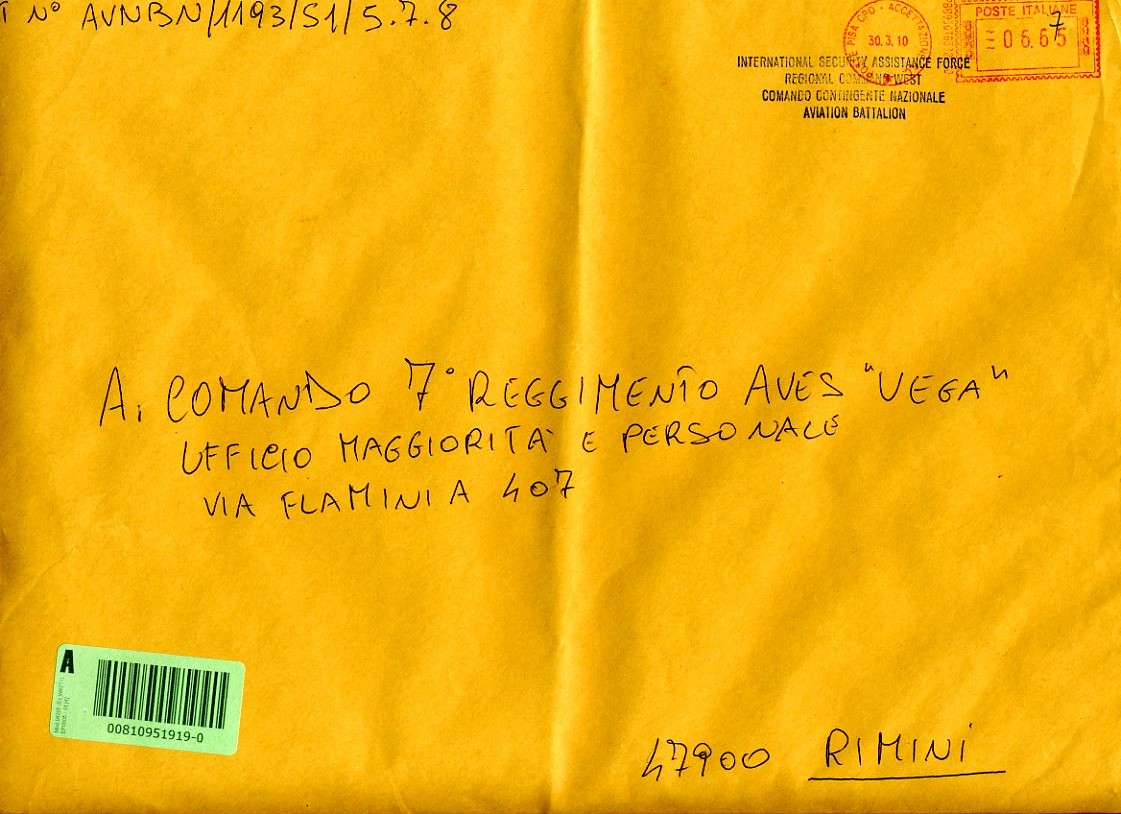 N° AVNBN/1193/S1/5.7.8
POSTE ITALIANE
7
06.65
PISA CPO - ACCETTAZIONE
30.3.10
INTERNATIONAL SECURITY ASSISTANCE FORCE
REGIONAL COMMAND WEST
COMANDO CONTINGENTE NAZIONALE
AVIATION BATTALION
A. COMANDO 7° REGGIMENTO AVES "VEGA"
UFFICIO MAGGIORITA' E PERSONALE
VIA FLAMINIA 407
A
00810951919-0
47900 RIMINI